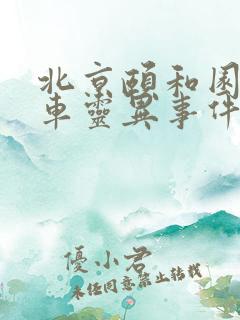 北京頤和園
車靈異事件
優小君
未徑同意禁止轉載